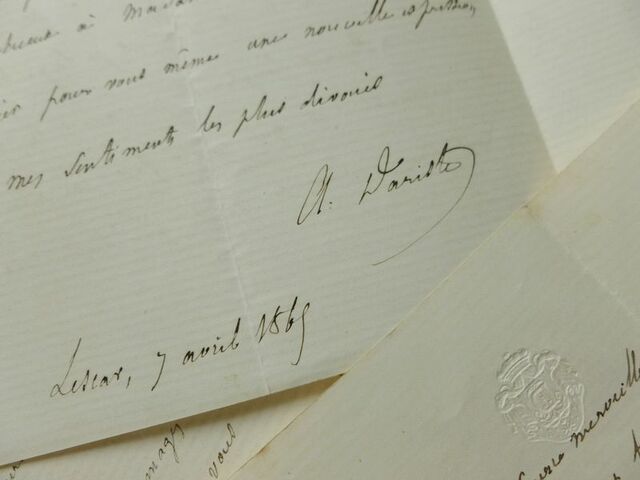 à Mada
pour vous mêmes une nouvelle expression
mes sentiments les plus dévoués
A. Dariste
Lescar, 7 avril 1865
vous
merveille